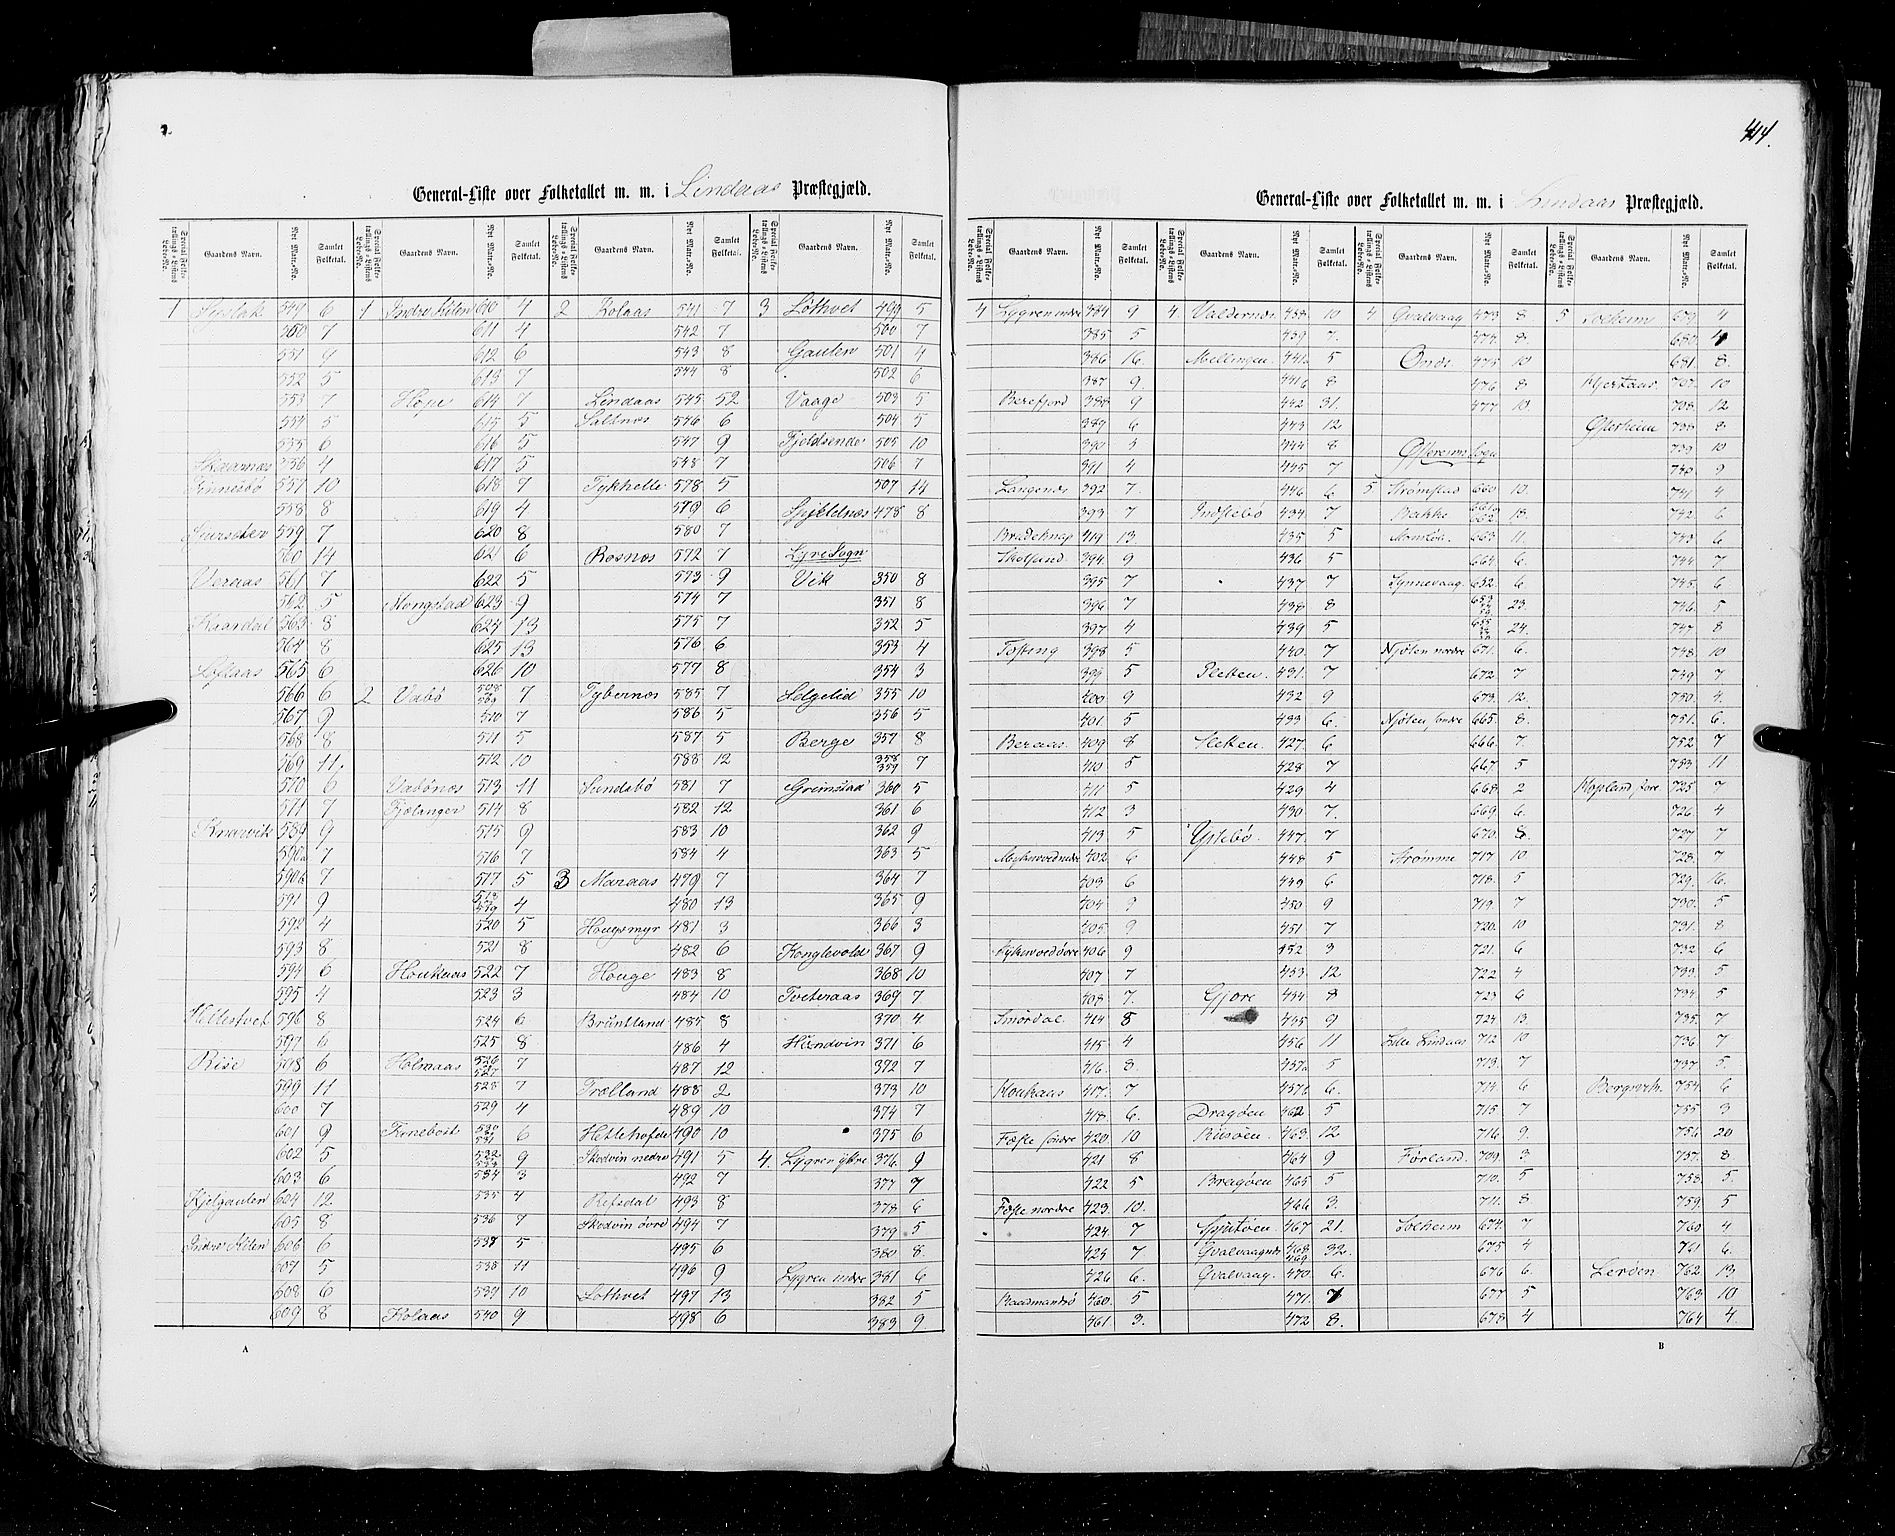 444.
General-Liste over Folketallet m. m. i Lindaas Præstegjæld.
Special Folketællings-Listens Løbe-No. Gaardens Navn. Nyt Matr.-No. Samlet Folketal.
1 549 6
550 7
551 9
552 5
553 7
554 5
555 6
556 4
557 10
558 8
559 7
560 14
Veraas 561 7
562 5
563 8
564 8
565 6
566 6
567 9
568 8
569 11.
570 6
571 7
Knarvik 589 9
590a 7
590b 7
591 9
592 4
593 8
594 6
595 4
596 8
597 6
Rise 598 6
599 11
600 7
601 9
602 5
603 6
604 12
605 8
606 6
607 5
608 6
609 8
1 610 4
611 4
612 6
613 7
Hope 614 7
615 5
616 5
617 5
618 7
619 4
620 8
621 6
622 5
Mongstad 623 9
624 13
625 13
626 10
2 Vabø 508 509 7
510 7
511 5
512 10
Vabønes 513 11
Fjelanger 514 8
515 9
516 7
517 5
518 519 4
520 5
521 8
Houkaas 522 7
523 3
524 6
525 8
Holmaas 526 527 7
528 7
529 4
530 531 6
532 533 9
534 3
535 4
536 7
537 5
538 11
539 10
Kolaas 540 9
2 Kolaas 541 7
542 7
543 8
544 8
Lindaas 545 52
546 6
547 9
548 7
Tykhelle 578 5
579 6
580 7
Rosnes 572 7
573 9
574 7
575 7
576 6
577 8
585 7
586 5
587 5
588 12
Sundsbø 581 7
582 12
583 10
584 4
3 Maraas 479 7
480 13
Hougsmyr 481 3
482 6
Houge 483 8
484 10
Bruntland 485 8
486 4
487 12
488 2
489 10
490 10
Skodvin nedre 491 5
492 7
Refsdal 493 8
Skodvin øvre 494 7
495 6
496 9
Løthvet 497 13
498 6
3 Løthvet 499 5
500 7
501 4
502 6
Vaage 503 5
504 5
Fjeldsende 505 10
506 7
507 14
478 8
Lyre Sogn
Vik 350 8
351 8
352 5
353 4
354 3
355 10
356 5
Berge 357 8
358 359 7
Grimstad 360 5
361 6
362 9
363 5
364 7
365 9
366 3
Konglevold 367 9
368 10
Tveteraas 369 7
370 4
Hundvin 371 6
372 7
373 10
374 7
375 6
4. Lygren ytre 376 9
377 7
378 6
379 5
380 8.
Lygren indre 381 6
382 5
383 9.
General-Liste over Folketallet m. m. i Lindaas Præstegjæld.
Special Folketællings-Listens Løbe-No. Gaardens Navn. Nyt Matr.-No. Samlet Folketal.
4 Lygren indre 384 9
385 5
386 16.
387 9.
388 9
389 6
390 5
391 4
392 7.
393 7
419 13.
394 9
395 7
396 7
397 4
398 5
399 5
400 9
401 5
Beraas. 409 8
410 5
411 5
412 3
413 5
402 6
403 6
404 9
405 9
406 9
407 7
408 7.
414 8
415 4
416 8.
417 7
418 6.
420 10
421 8
422 5
423 10.
424 7
425 7
426 6.
460 5
461 3.
4. Valdernes 458 10
459 7.
Mellingen 441a 5
441b 8
442 31.
443 12
444 8
445 7
446 6
Indstebø 434 7
435 5
436 5
437 7
438 8
439 5
440 7
431 7
432 9
433 6.
Sletten. 427 6
428 7
429 4
430 7.
447 7
448 5
449 6
450 9
451 7
452 3
453 12
454 8
455 9
456 11
457a 5
457b 6.
Dragøen 462 5
463 12
464 9
465 5
466 3.
467 21.
468 469 32.
Qvalvaag. 470 6.
471 7
472 8.
4 Qvalvaag 473 8
474 8.
475 10
476 8
477 10
5 Strømstad 660 10.
661 662 13.
663 11.
664 6.
652 6
23.
24.
671 6.
672 7
673 12.
665 8.
666 7.
667 5
668 2
669 6.
670 8.
Strømme 717 10.
718. 5
719. 7
720. 10
721. 6
722. 4
723 6
724 13.
Lille Lindaas 712 10
713. 7
714 6
715 7
716 9.
Førland. 709. 3
710. 5
711. 8
Solheim 674. 7
675 4
676 6.
677 5
678 4
5 Solheim 679 4
680.
681 8.
707. 10
708. 12
738 8
739 10
740 9
741 4
742 6
743 6
744 7
745 6
746 5
747 8
748 10
749 7
750 4.
751. 6.
752. 7
753 11
725 7
726. 4
727 7
728. 7
729. 16.
730. 5
731. 8
732 6
733. 5
734 5
735. 7
736 7
737 5.
754 6
755 3
756 20
757. 8
758. 5.
759. 5
760 4
761 6.
762 13
763 10
764 4.
A
B